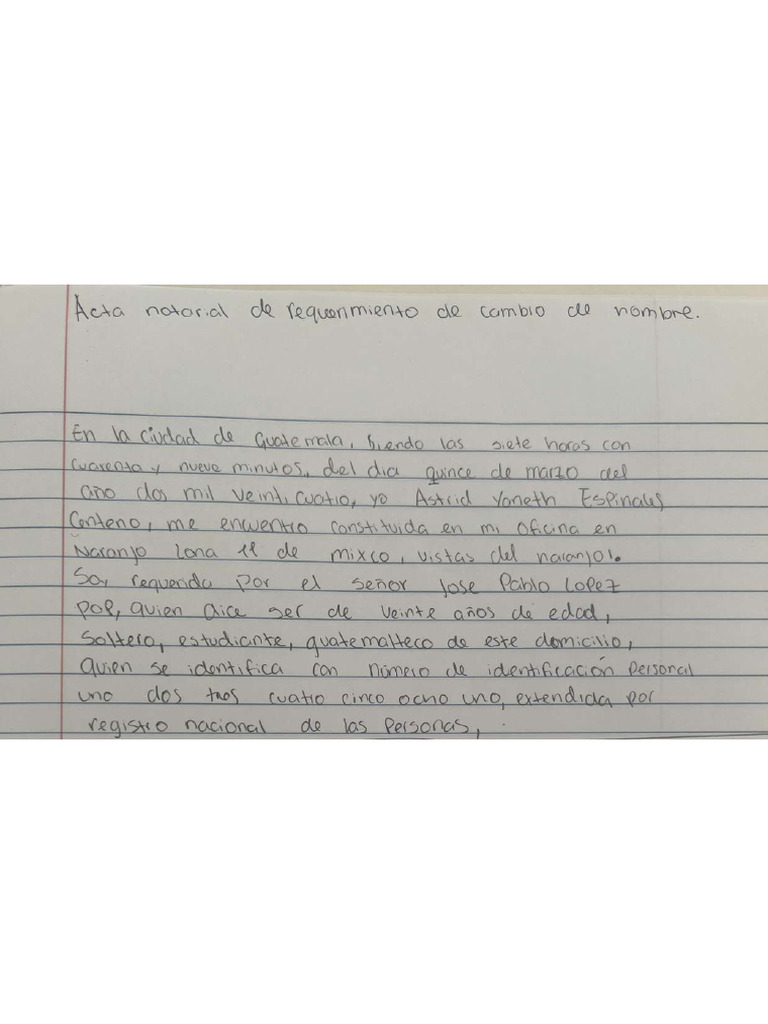 Acta notorial de requerimiento de cambio de nombre.
En la ciudad de Guatemala, siendo las siete horas con
cuarenta y nueve minutos, del dia quince de marzo del
año dos mil veinticuatro, yo Astrid Yaneth Espinales
Centeno, me encuentro constituida en mi oficina en
Naranjo zona 11 de mixco, vistas del naranjo.
Soy requerida por el señor Jose Pablo Lopez
pop, quien dice ser de veinte años de edad,
Soltero, estudiante, guatemalteco de este domicilio,
quien se identifica con número de identificación personal
uno dos tres cuatro cinco ocho uno, extendida por
registro nacional de las Personas,